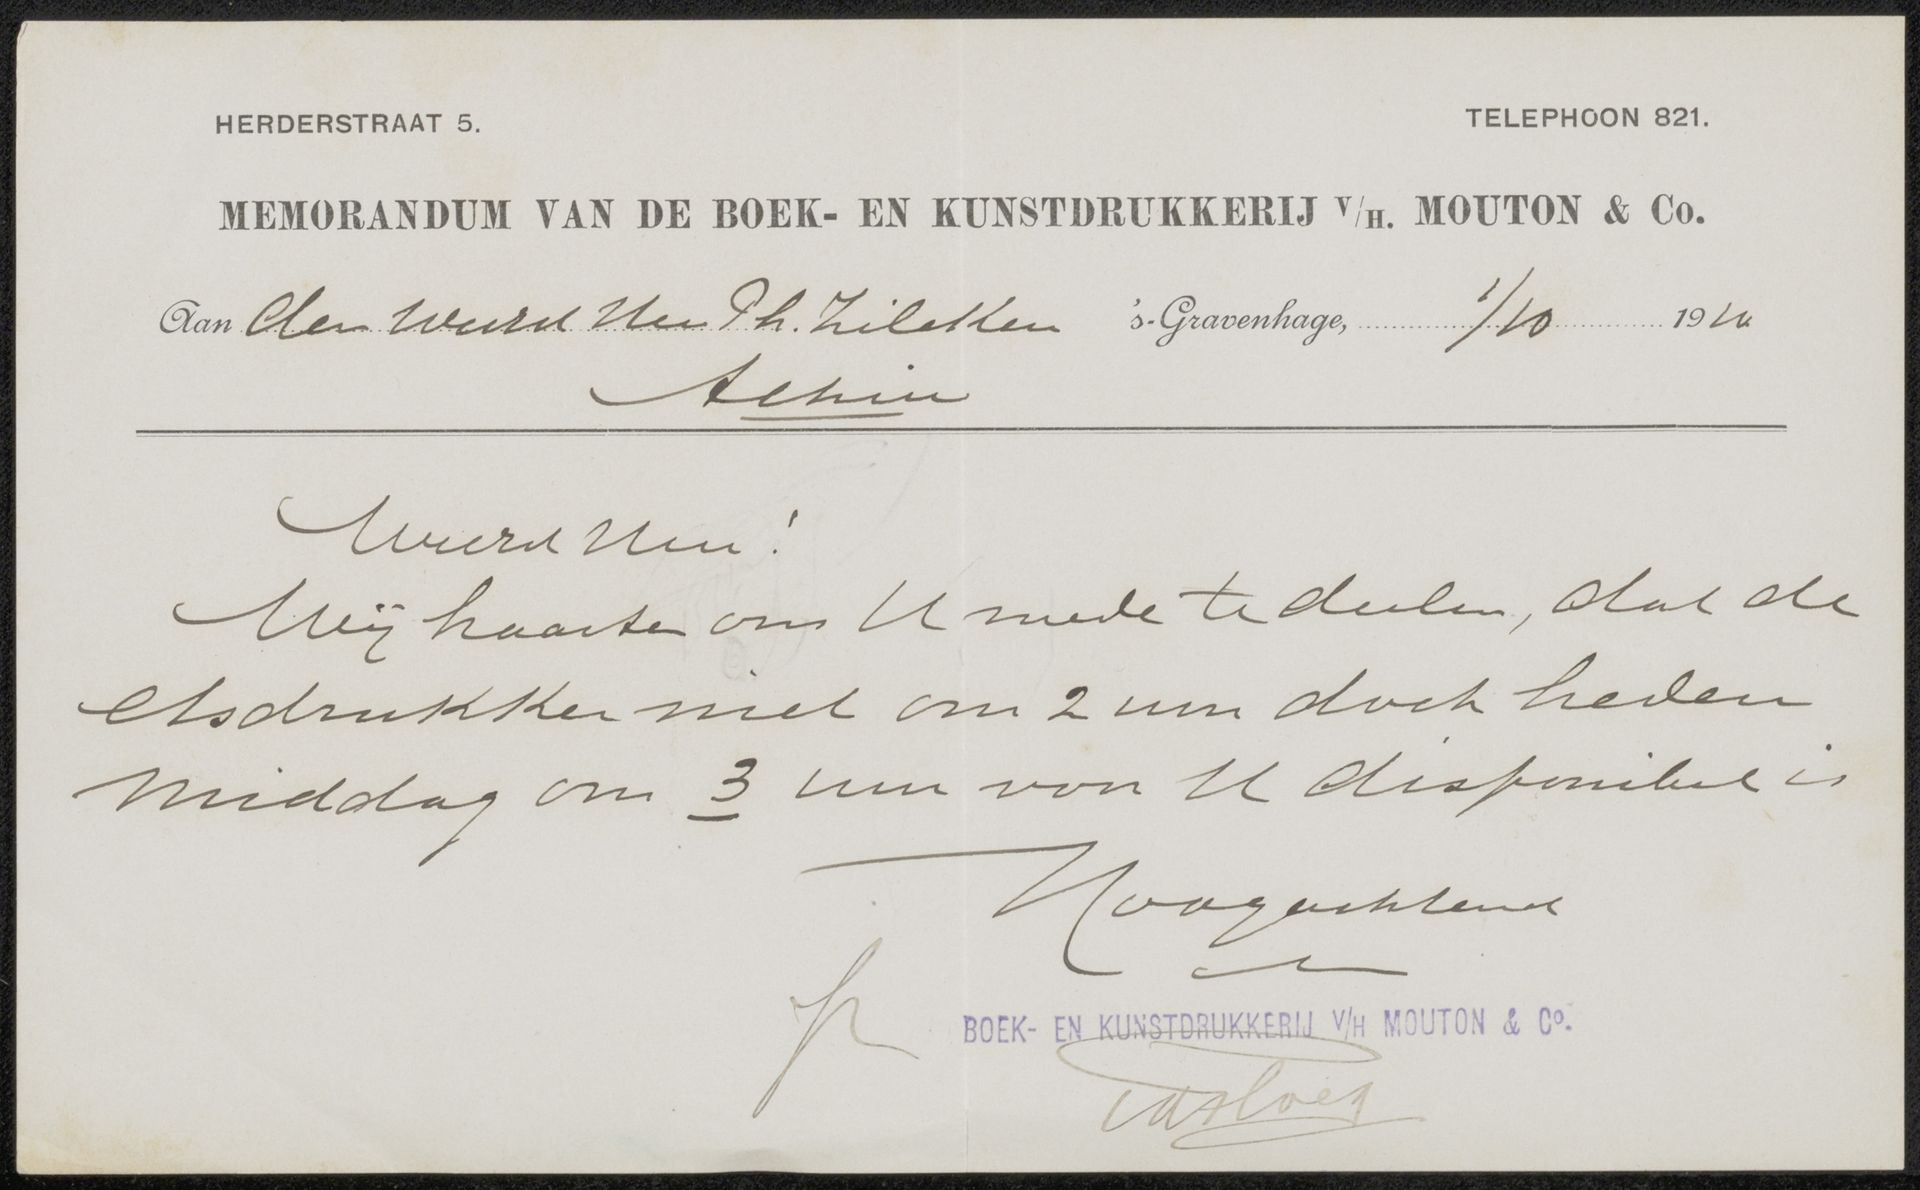 HERDERSTRAAT 5.
TELEPHOON 821.
MEMORANDUM VAN DE BOEK- EN KUNSTDRUKKERIJ V/H. MOUTON & Co.
Aan den Weled Heer Ph. Zilcken 's-Gravenhage, 1/10 1910
Alhier
Weled Heer!
Wij haasten ons U mede te deelen, dat de
etsdrukker niet om 2 uur doch heden
middag om 3 uur voor U disponibel is
Hoogachtend
BOEK- EN KUNSTDRUKKERIJ V/H MOUTON & Co.